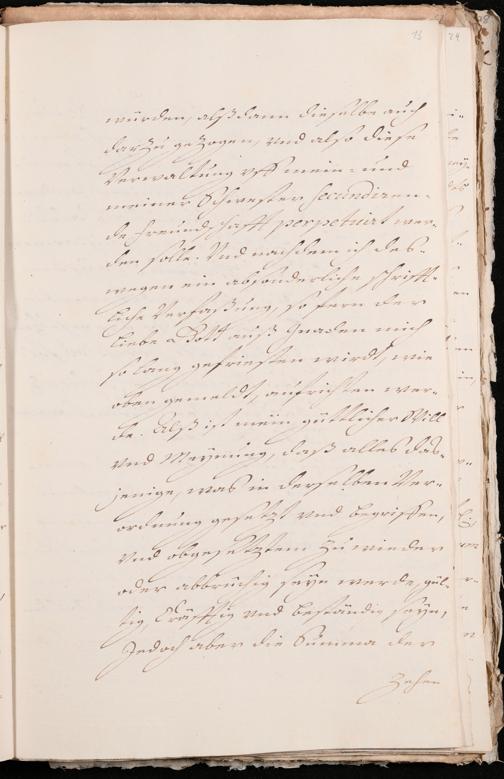 13 24
würden, alßdann dieselbe auch
darzu gezogen, vnd also diese
Verwaltung vff mein- und
meiner Schwester secundiren-
de freundschafft perpetuirt wer-
den solle. Vnd nachdem ich des-
wegen ein absonderliche schrifft-
liche Verfaßung, so fern der
liebe Gott auß gnaden mich
so lang gefristen wirdt, wie
oben gemeldt, aufrichten wer-
de. Alß ist mein güttlicher Will
vnd Meynung, daß alles das-
jenige, was in derselben Ver-
ordnung gesetzt vnd begriffen,
vnd obgesetztem zu wieder
oder abbrüchig seyn werde, gül-
tig, kräfftig vnd beständig seyn,
Jedoch aber die Summa der
Zehen